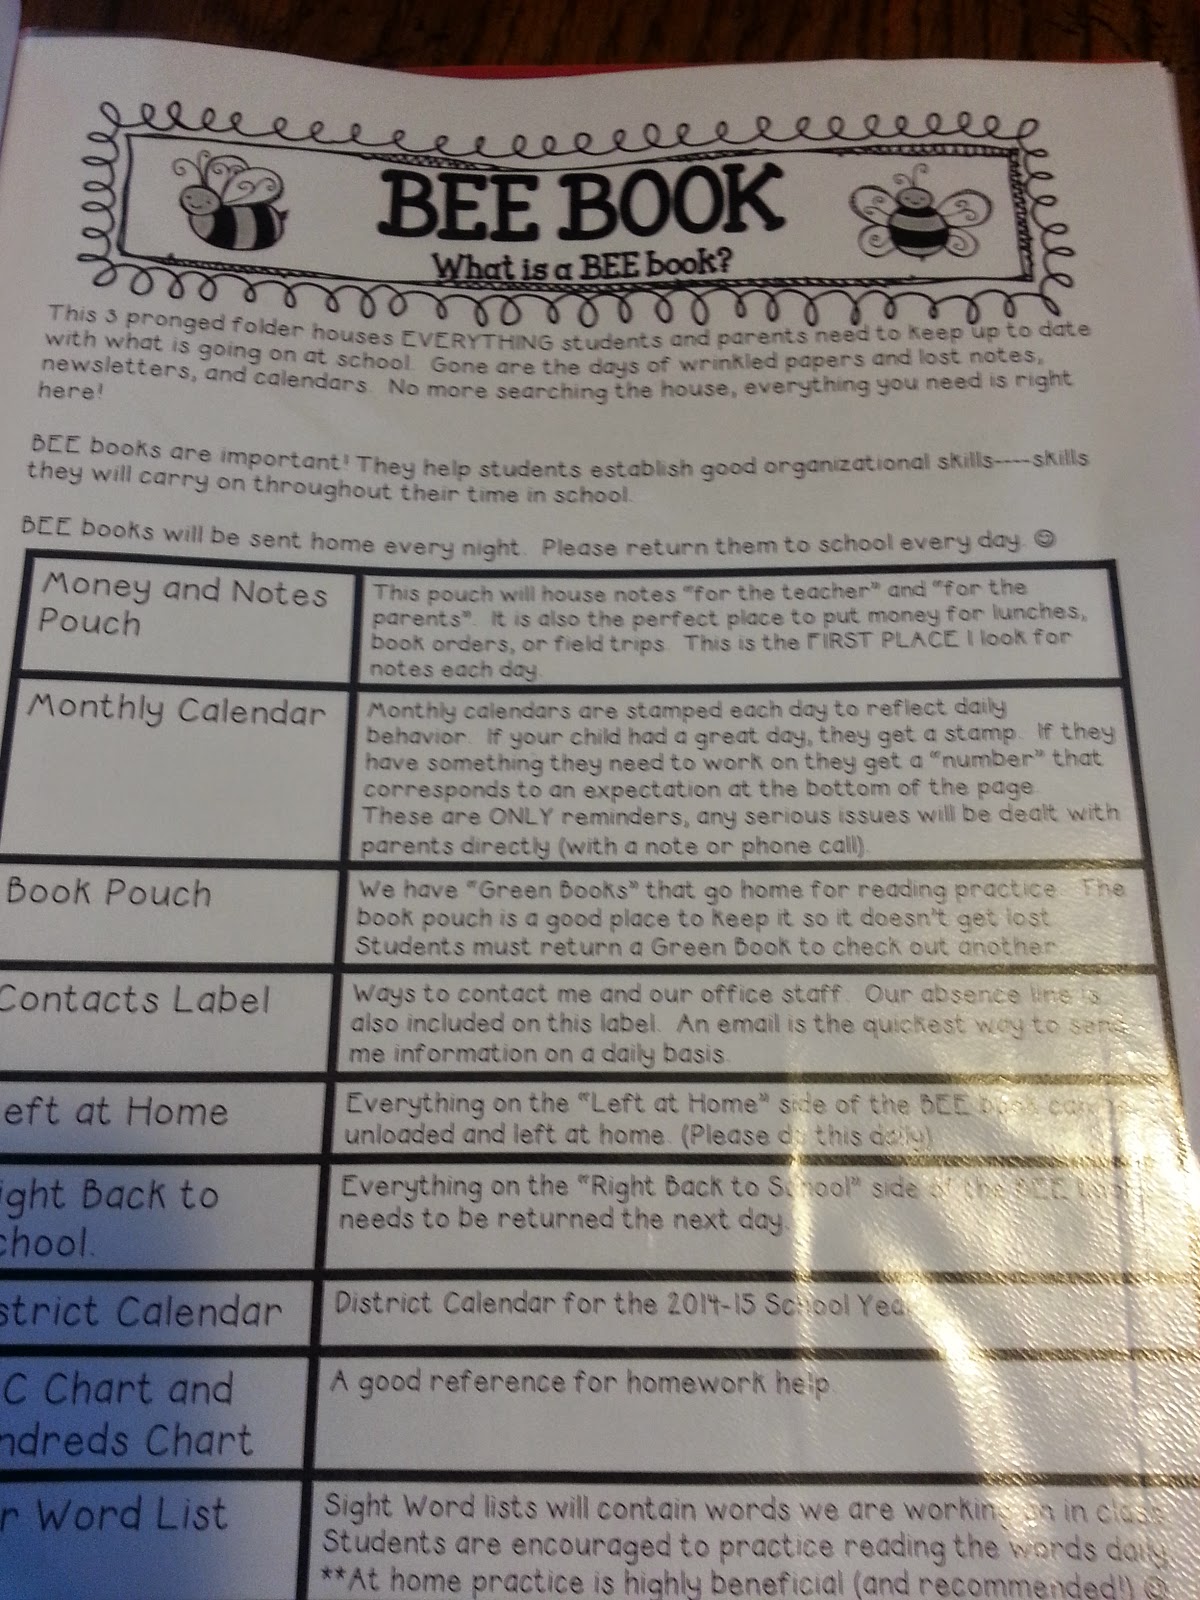 BEE BOOK
What is a BEE book?
This 3 pronged folder houses EVERYTHING students and parents need to keep up to date
with what is going on at school. Gone are the days of wrinkled papers and lost notes,
newsletters, and calendars. No more searching the house, everything you need is right
here!
BEE books are important! They help students establish good organizational skills----skills
they will carry on throughout their time in school.
BEE books will be sent home every night. Please return them to school every day. ☺
Money and Notes
Pouch
This pouch will house notes "for the teacher" and "for the
parents". It is also the perfect place to put money for lunches,
book orders, or field trips. This is the FIRST PLACE I look for
notes each day.
Monthly Calendar
Monthly calendars are stamped each day to reflect daily
behavior. If your child had a great day, they get a stamp. If they
have something they need to work on they get a "number" that
corresponds to an expectation at the bottom of the page.
These are ONLY reminders, any serious issues will be dealt with
parents directly (with a note or phone call).
Book Pouch
We have "Green Books" that go home for reading practice. The
book pouch is a good place to keep it so it doesn't get lost.
Students must return a Green Book to check out another.
Contacts Label
Ways to contact me and our office staff. Our absence line is
also included on this label. An email is the quickest way to send
me information on a daily basis.
eft at Home
Everything on the "Left at Home" side of the BEE book can
unloaded and left at home. (Please do this daily)
ight Back to
chool.
Everything on the "Right Back to School" side of the BEE
needs to be returned the next day.
strict Calendar
District Calendar for the 2014-15 School Year
C Chart and
ndreds Chart
A good reference for homework help.
r Word List
Sight Word lists will contain words we are working on in class.
Students are encouraged to practice reading the words daily.
**At home practice is highly beneficial (and recommended!) ☺